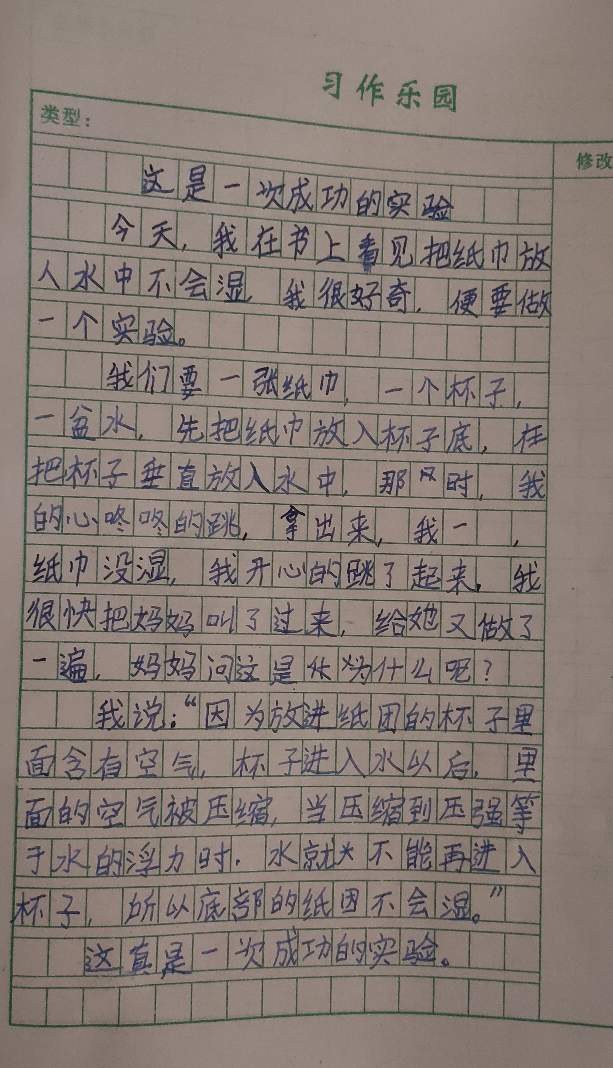 习作乐园
类型：
修改
这是一次成功的实验
今天，我在书上看见把纸巾放
人水中不会湿，我很好奇，便要做
一个实验。
我们要一张纸巾，一个杯子，
一盆水，先把纸巾放入杯子底，在
把杯子垂直放入水中，那时，我
的心咚咚的跳，拿出来，我一，
纸巾没湿，我开心的跳了起来，我
很快把妈妈叫了过来，给她又做了
一遍，妈妈问这是为什么呢？
我说：“因为放进纸团的杯子里
面含有空气，杯子进入水以后，里
面的空气被压缩，当压缩到压强等
于水的浮力时，水就不能再进入
杯子，所以底部的纸团不会湿。”
这真是一次成功的实验。